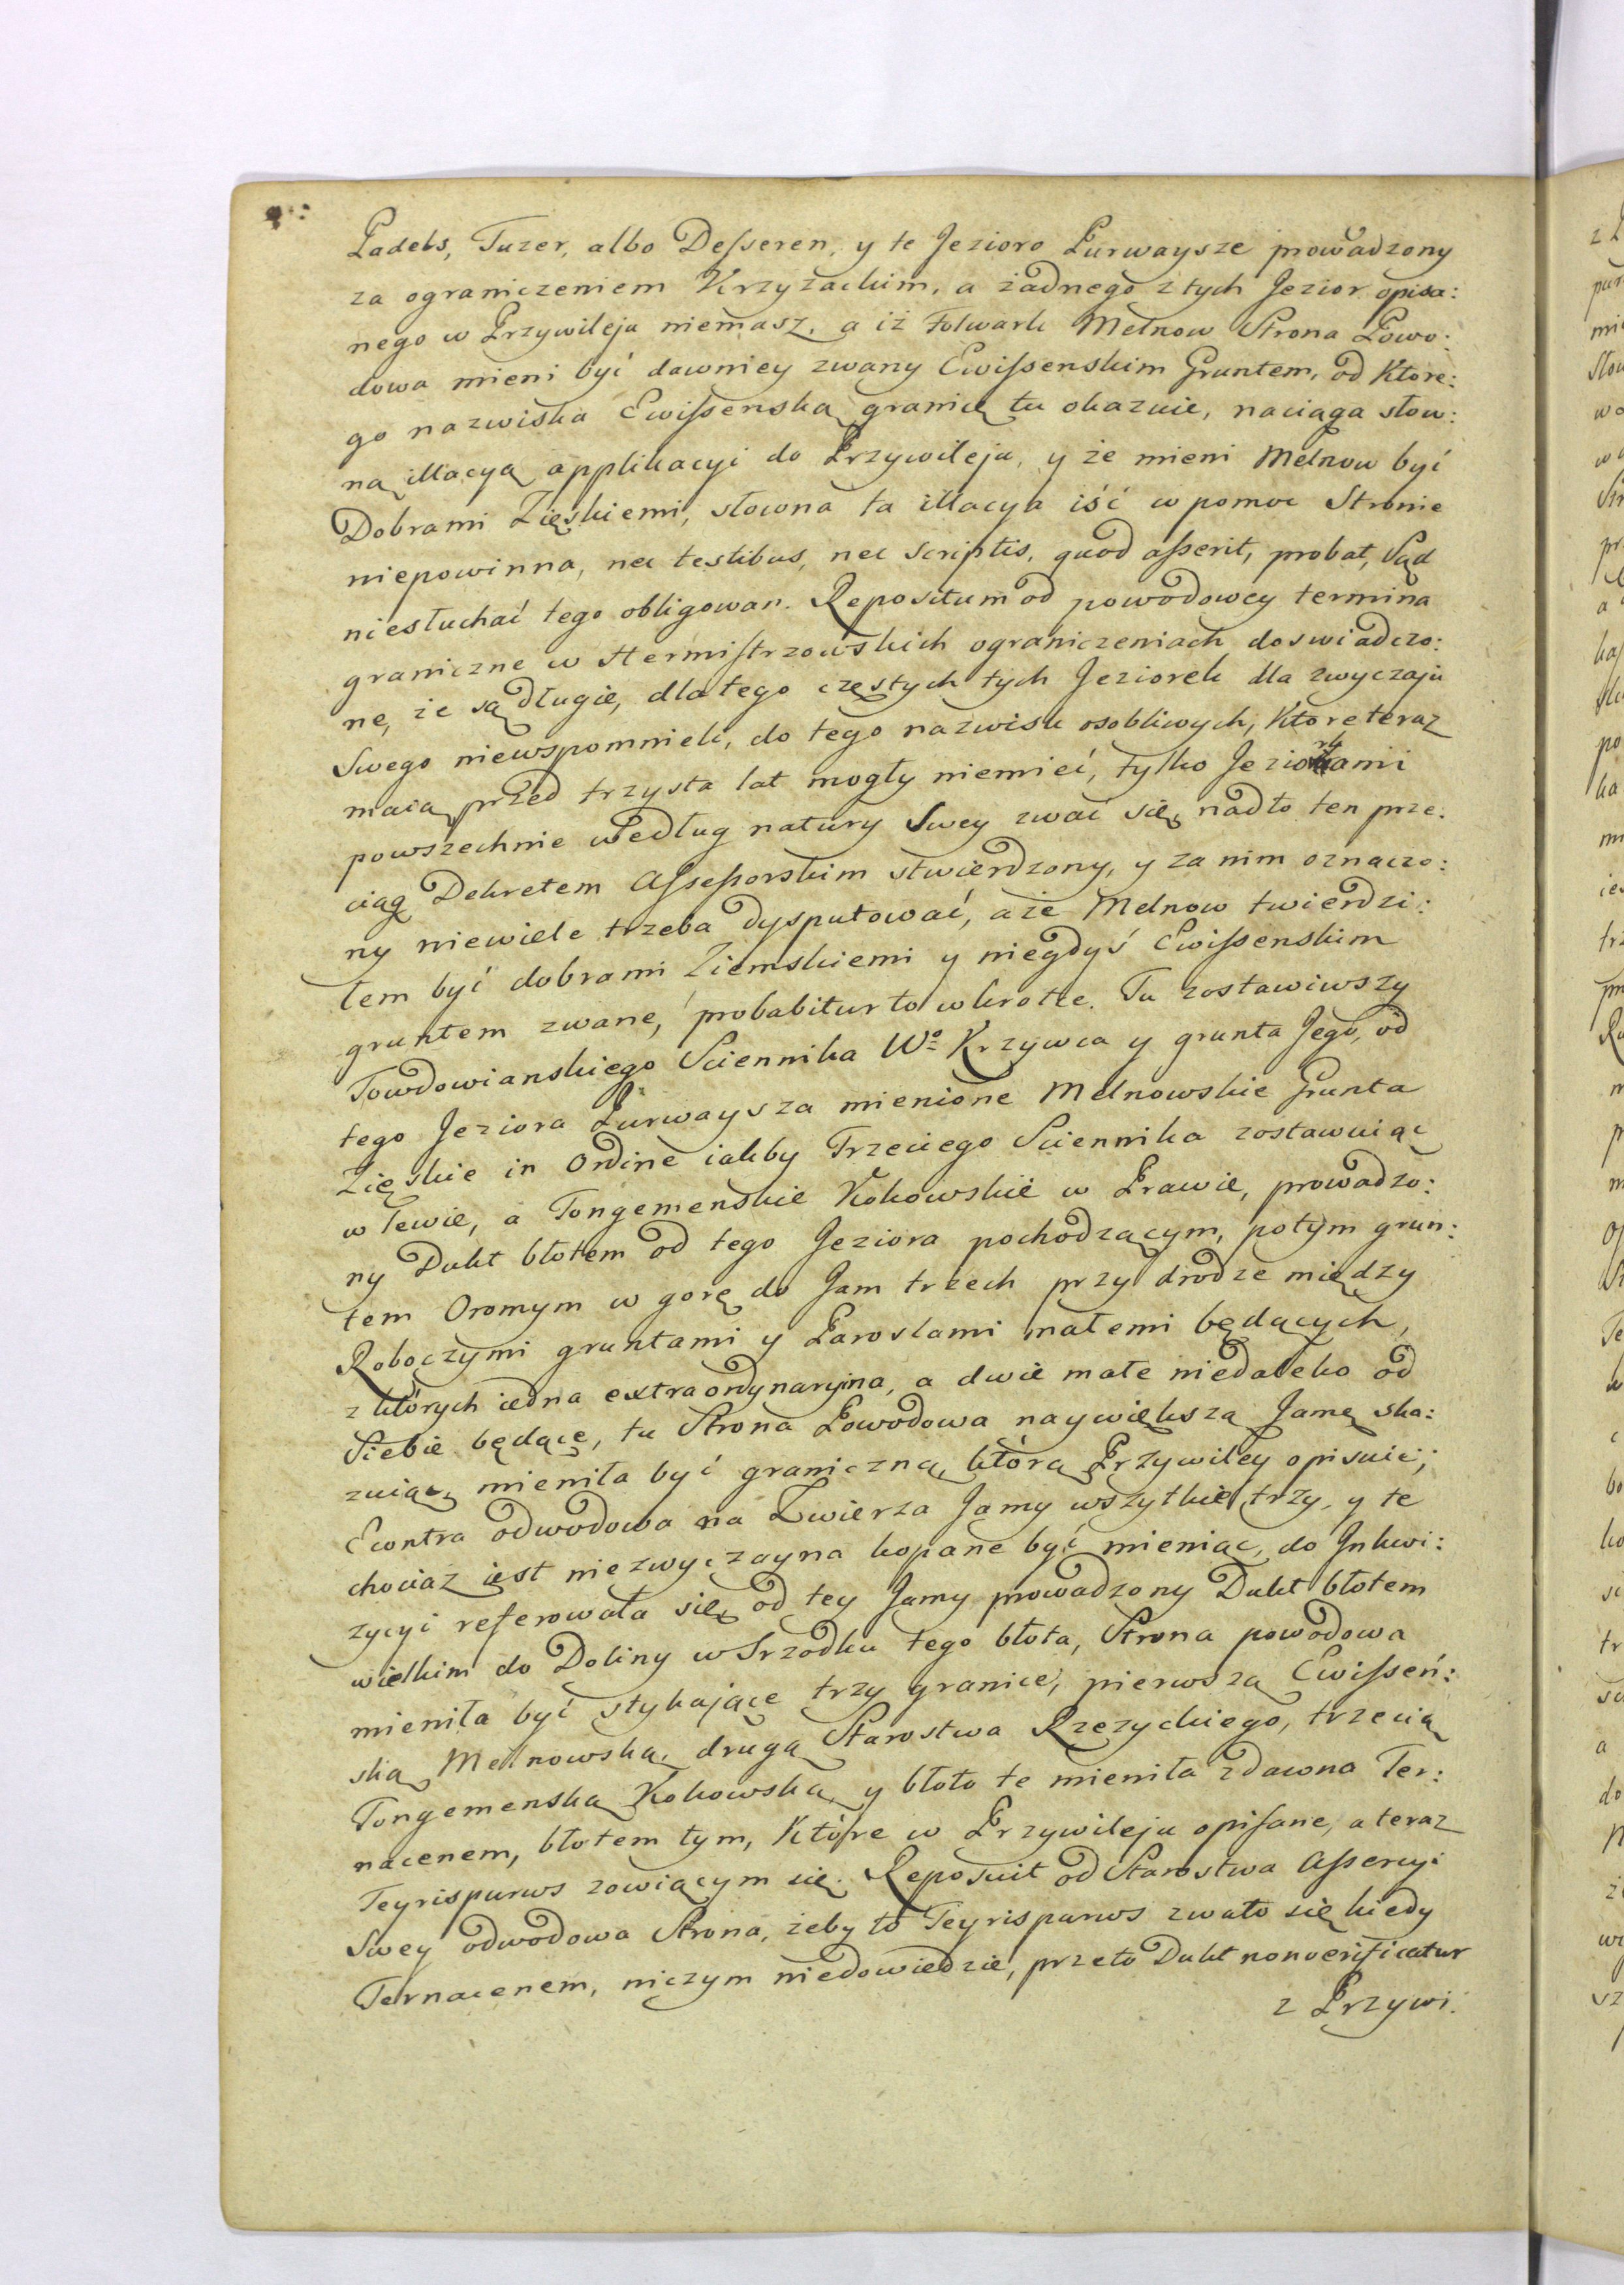 Padels, Tuzer, albo Desseren, y te Jezioro Purwaysze prowadzony
za ograniczeniem Krzyżackim, a żadnego z tych Jezior opisa:
nego w Przywileju niemasz, a iż Folwark Melnow Strona Powo:
dowa mieni być dawniey zwany Ewissenskim Gruntem, od Ktore:
go nazwiska Ewissenską granicę tu okazuie, naciąga słow:
ną illacyą applikacyi do Przywileju, y że mieni Melnow być
Dobrami Zięskiemi, słowna ta illacya iść w pomoc Stronie
niepowinna, nec testibus, nec Scriptis, quod asserit, probat, Sąd
niesłuchać tego obligowan. Repositum od powodowey termina
graniczne w Hermistrzowskich ograniczeniach doswiadczo:
ne, że są długie, dla tego częstych tych Jeziorek dla zwyczaju
Swego niewspomnieli, do tego nazwisk osobliwych, Ktore teraz
maią przed trzysta lat mogły niemieć, tylko Jeziorkami
powszechnie według natury Swey zwać się, nadto ten prze:
ciąg Dekretem Assessorskim stwierdzony, y za nim oznaczo:
ny niewiele trzeba dysputować, a że Melnow twierdzi:
łem być dobrami Ziemskiemi y niegdyś Ewissenskim
gruntem zwane, probabitur to wkrotce. Tu zostawiwszy
Towdowianskiego Sciennika Wo Krzywca y grunta Jego, od
tego Jeziora Purwaysza mienione Melnowskie Grunta
Zięskie in Ordine iakby Trzeciego Sciennika zostawuiąc
w lewie, a Tongemenskie Kokowskie w Prawie, prowadzo:
ny Dukt błotem od tego Jeziora pochodzącym, potym grun:
tem Oromym w gorę do Jam trzech przy drodze między
Roboczymi gruntami y Paroslami małemi będących,
z których iedna extraordynaryjna, a dwie małe niedaleko od
Siebie będące, tu Strona Powodowa naywiększą Jamę ska:
zuiąc, mieniła być graniczną, którą Przywiley opisuie;
Econtra odwodowa na Zwierza Jamy wszytkie trzy, y te
chociaz iest niezwyczayna kopane być mieniąc, do Inkwi:
zycyi referowała się, od tey Jamy prowadzony Dukt błotem
wielkim do Doliny w Srzodku tego błota, Strona powodowa
mieniła być stykające trzy granice, pierwszą Ewisseń:
ską Melnowską, drugą Starostwa Rzezyckiego, trzecią
Tongemenską Kokowską, y błoto te mieniła zdawna Ter:
nacenem, błotem tym, Które w Przywileju opisane, a teraz
Teyrispurws zowiącym się. Reposuit od Starostwa Assercyi
Swey odwodowa Strona, żeby to Teyrispurws zwało się kiedy
Ternacenem, niczym niedowiedzie, przeto Dukt nonverificatur
z Przywi: